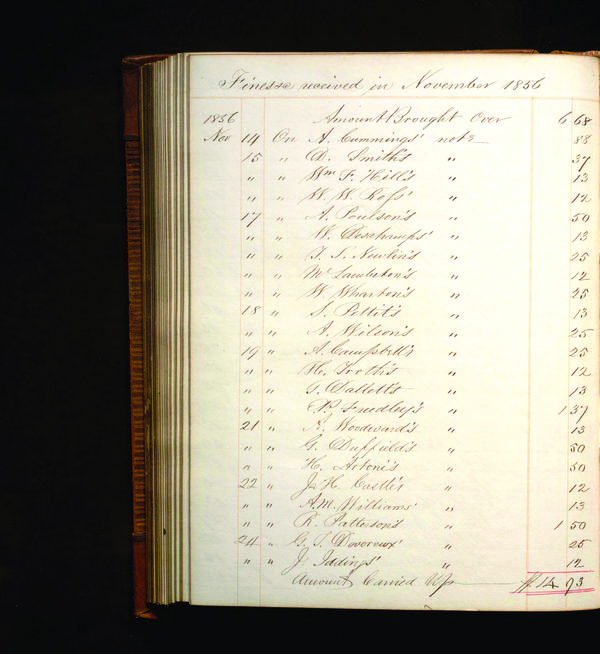 Fines received in November 1856
1856 Amount Brought Over 6 68
Nov 14 On A. Cummings' note 88
15 " D. Smith's " 37
" " Wm F. Hill's " 13
" " W. W. Ross' " 12
17 " A. Poulson's " 50
" " W. Deschamps' " 13
" " T. S. Newlin's " 25
" " " 12
" " W. Wharton's " 25
18 " S. Pettit's " 13
" " A. Wilson's " 25
19 " A. Campbell's " 25
" " H. Troth's " 12
" " G. " 13
" " Freedley's " 1 37
21 " A. Woodward's " 13
" " G. Duffield's " 50
" " H. " 50
22 " J. H. Castle's " 12
" " A.M. Williams' " 13
" " R. Patterson's " 1 50
24 " G. T. Devereux' " 25
" " J Iddings' " 12
Amount Carried Up $ 14 93